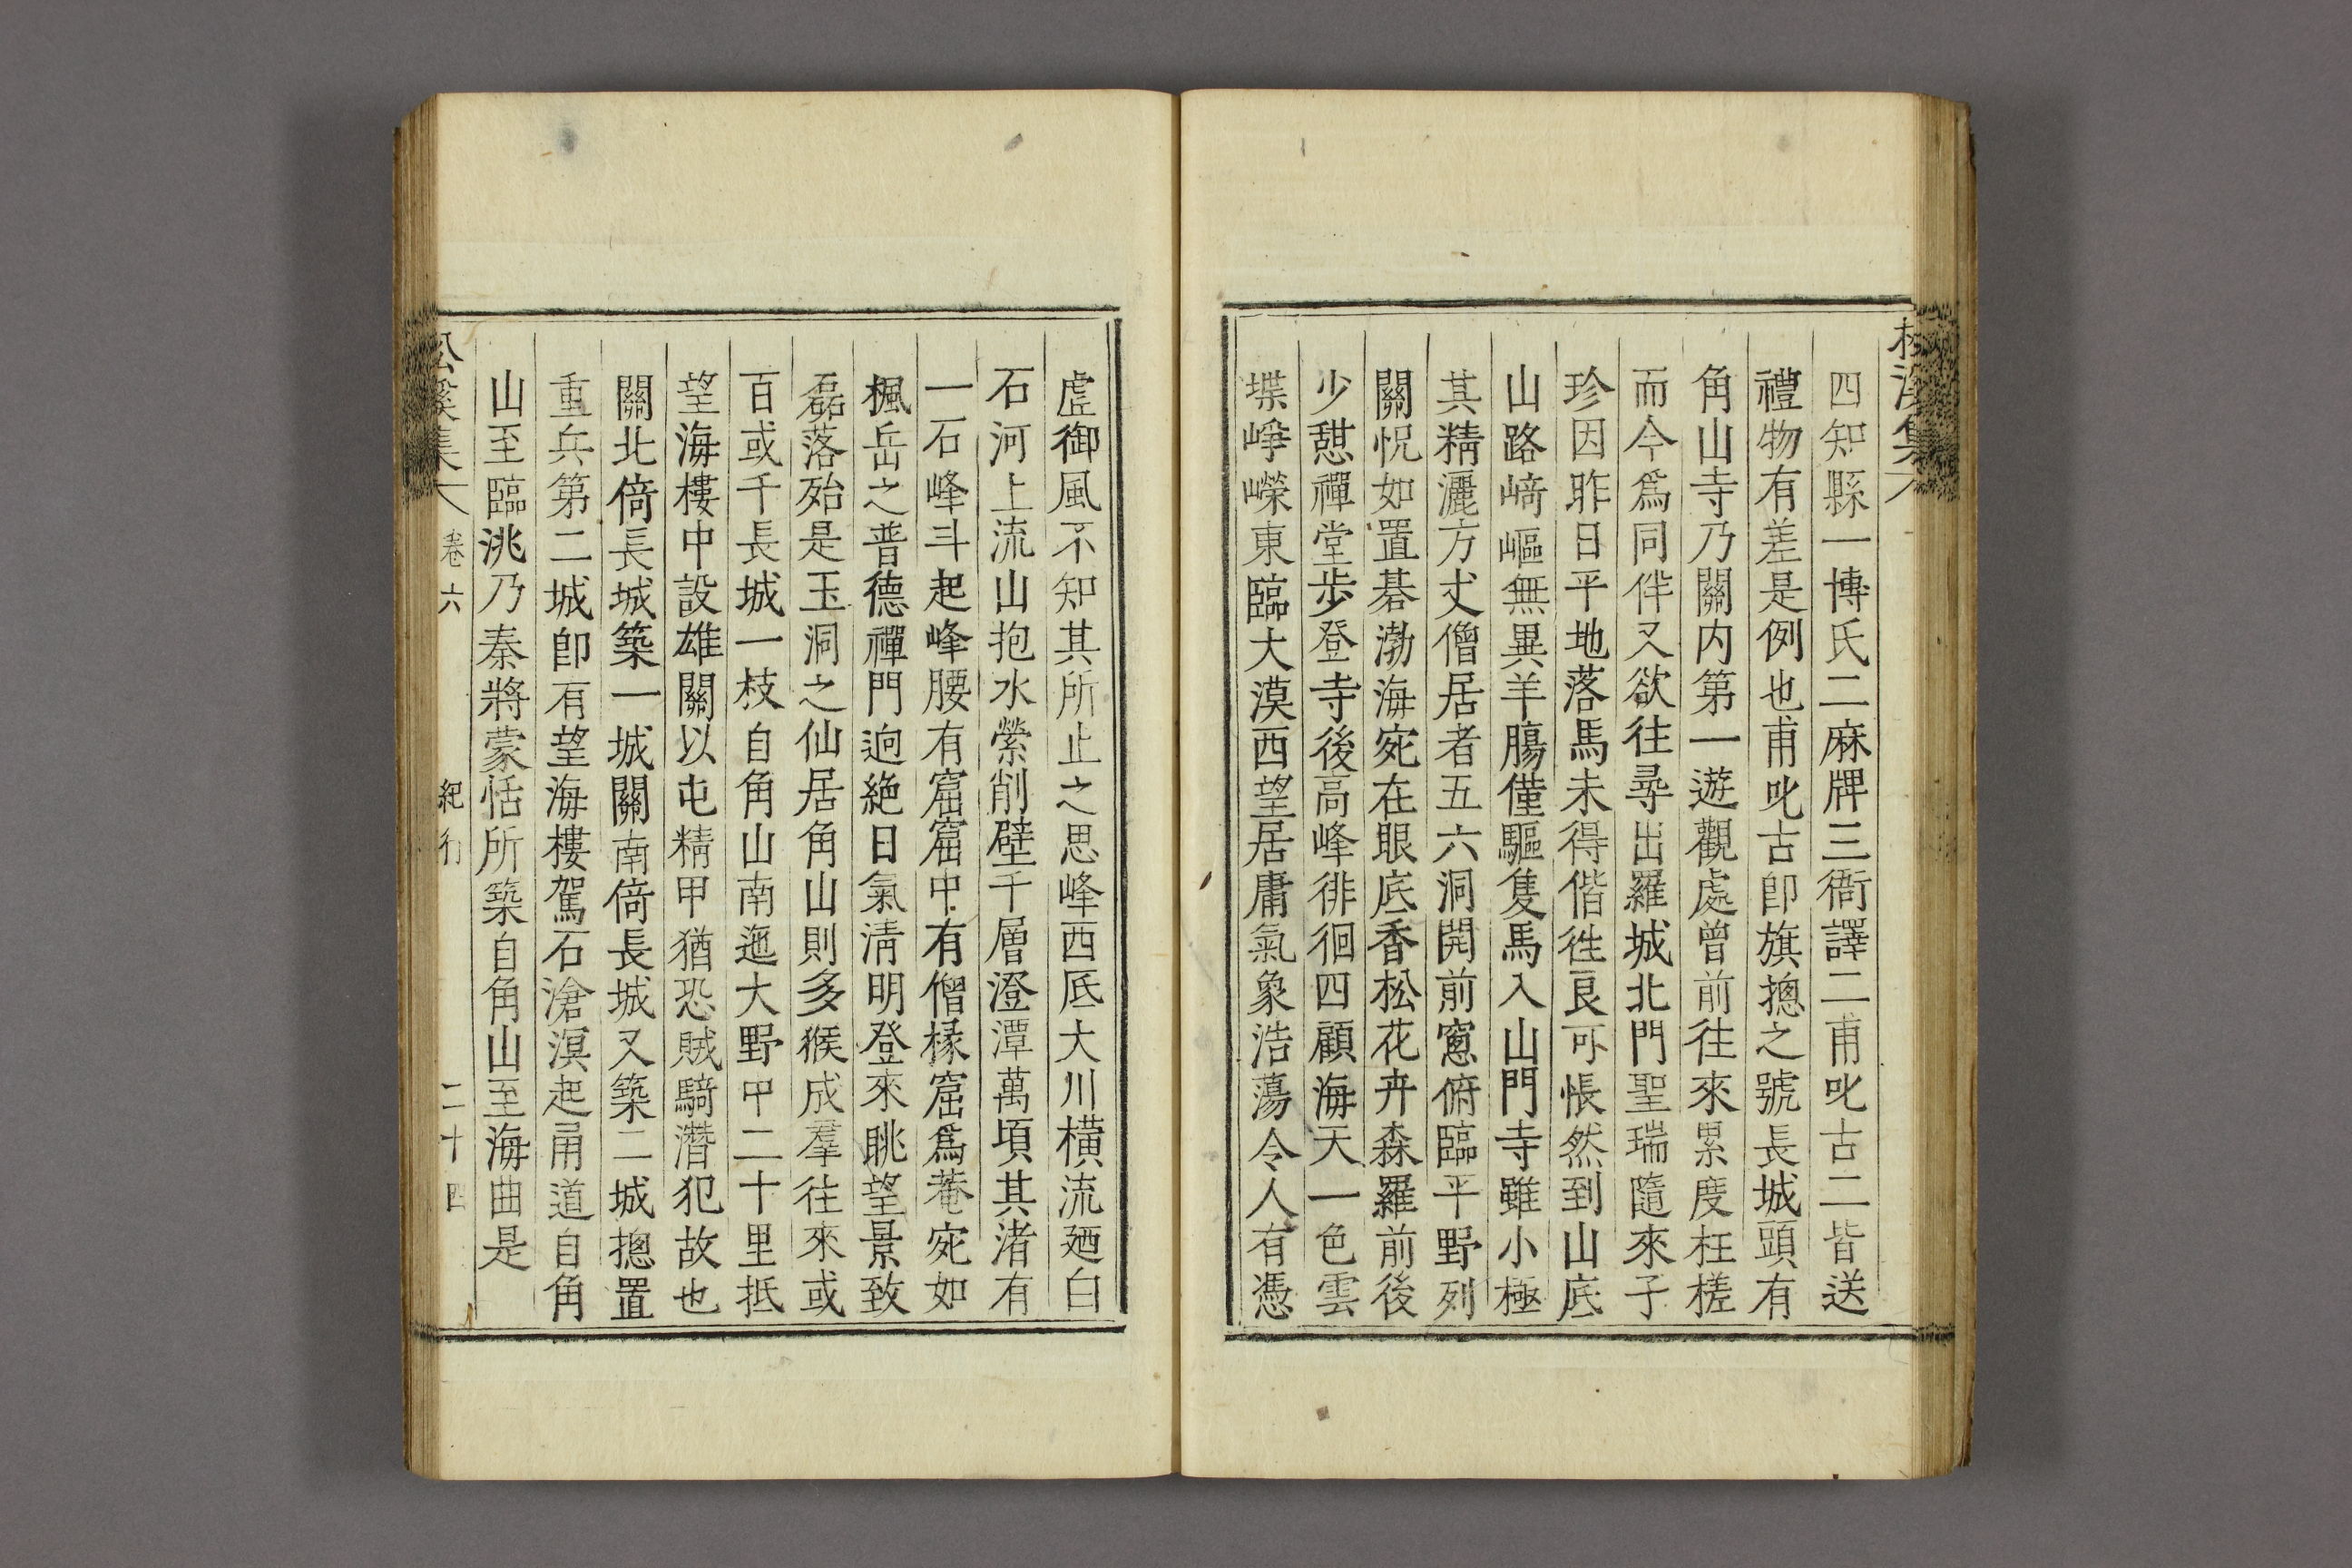 松溪集
四知縣一博氏二麻牌三衙譯二甫叱古二皆送
禮物有差是例也甫叱古卽旗摠之號長城頭有
角山寺乃關内第一遊觀處曾前往來累度枉槎
而今爲同伴又欲往尋出羅城北門聖瑞隨來子
珍因昨日平地落馬未得偕徃良可悵然到山底
山路﨑嶇無異羊膓僅驅隻馬入山門寺雖小極
其精灑方丈僧居者五六洞開前窻俯臨平野列
關怳如置碁渤海宛在眼底香松花卉森羅前後
少憇禪堂步登寺後高峰徘徊四顧海天一色雲
堞崢嶸東臨大漠西望居庸氣象浩蕩令人有憑
虛御風不知其所止之思峰西底大川橫流廼白
石河上流山抱水縈削壁千層澄潭萬頃其渚有
一石峰斗起峰腰有窟窟中有僧椽窟爲菴宛如
楓岳之普德禪門逈絶日氣淸明登來眺望景致
磊落殆是玉洞之仙居角山則多猴成羣往來或
百或千長城一枝自角山南迤大野中二十里抵
望海樓中設雄關以屯精甲猶恐賊騎潛犯故也
關北倚長城築一城關南倚長城又築二城摠置
重兵第二城卽有望海樓駕石滄溟起甬道自角
山至臨洮乃秦將蒙恬所築自角山至海曲是
松溪集 卷六 紀行 二十四